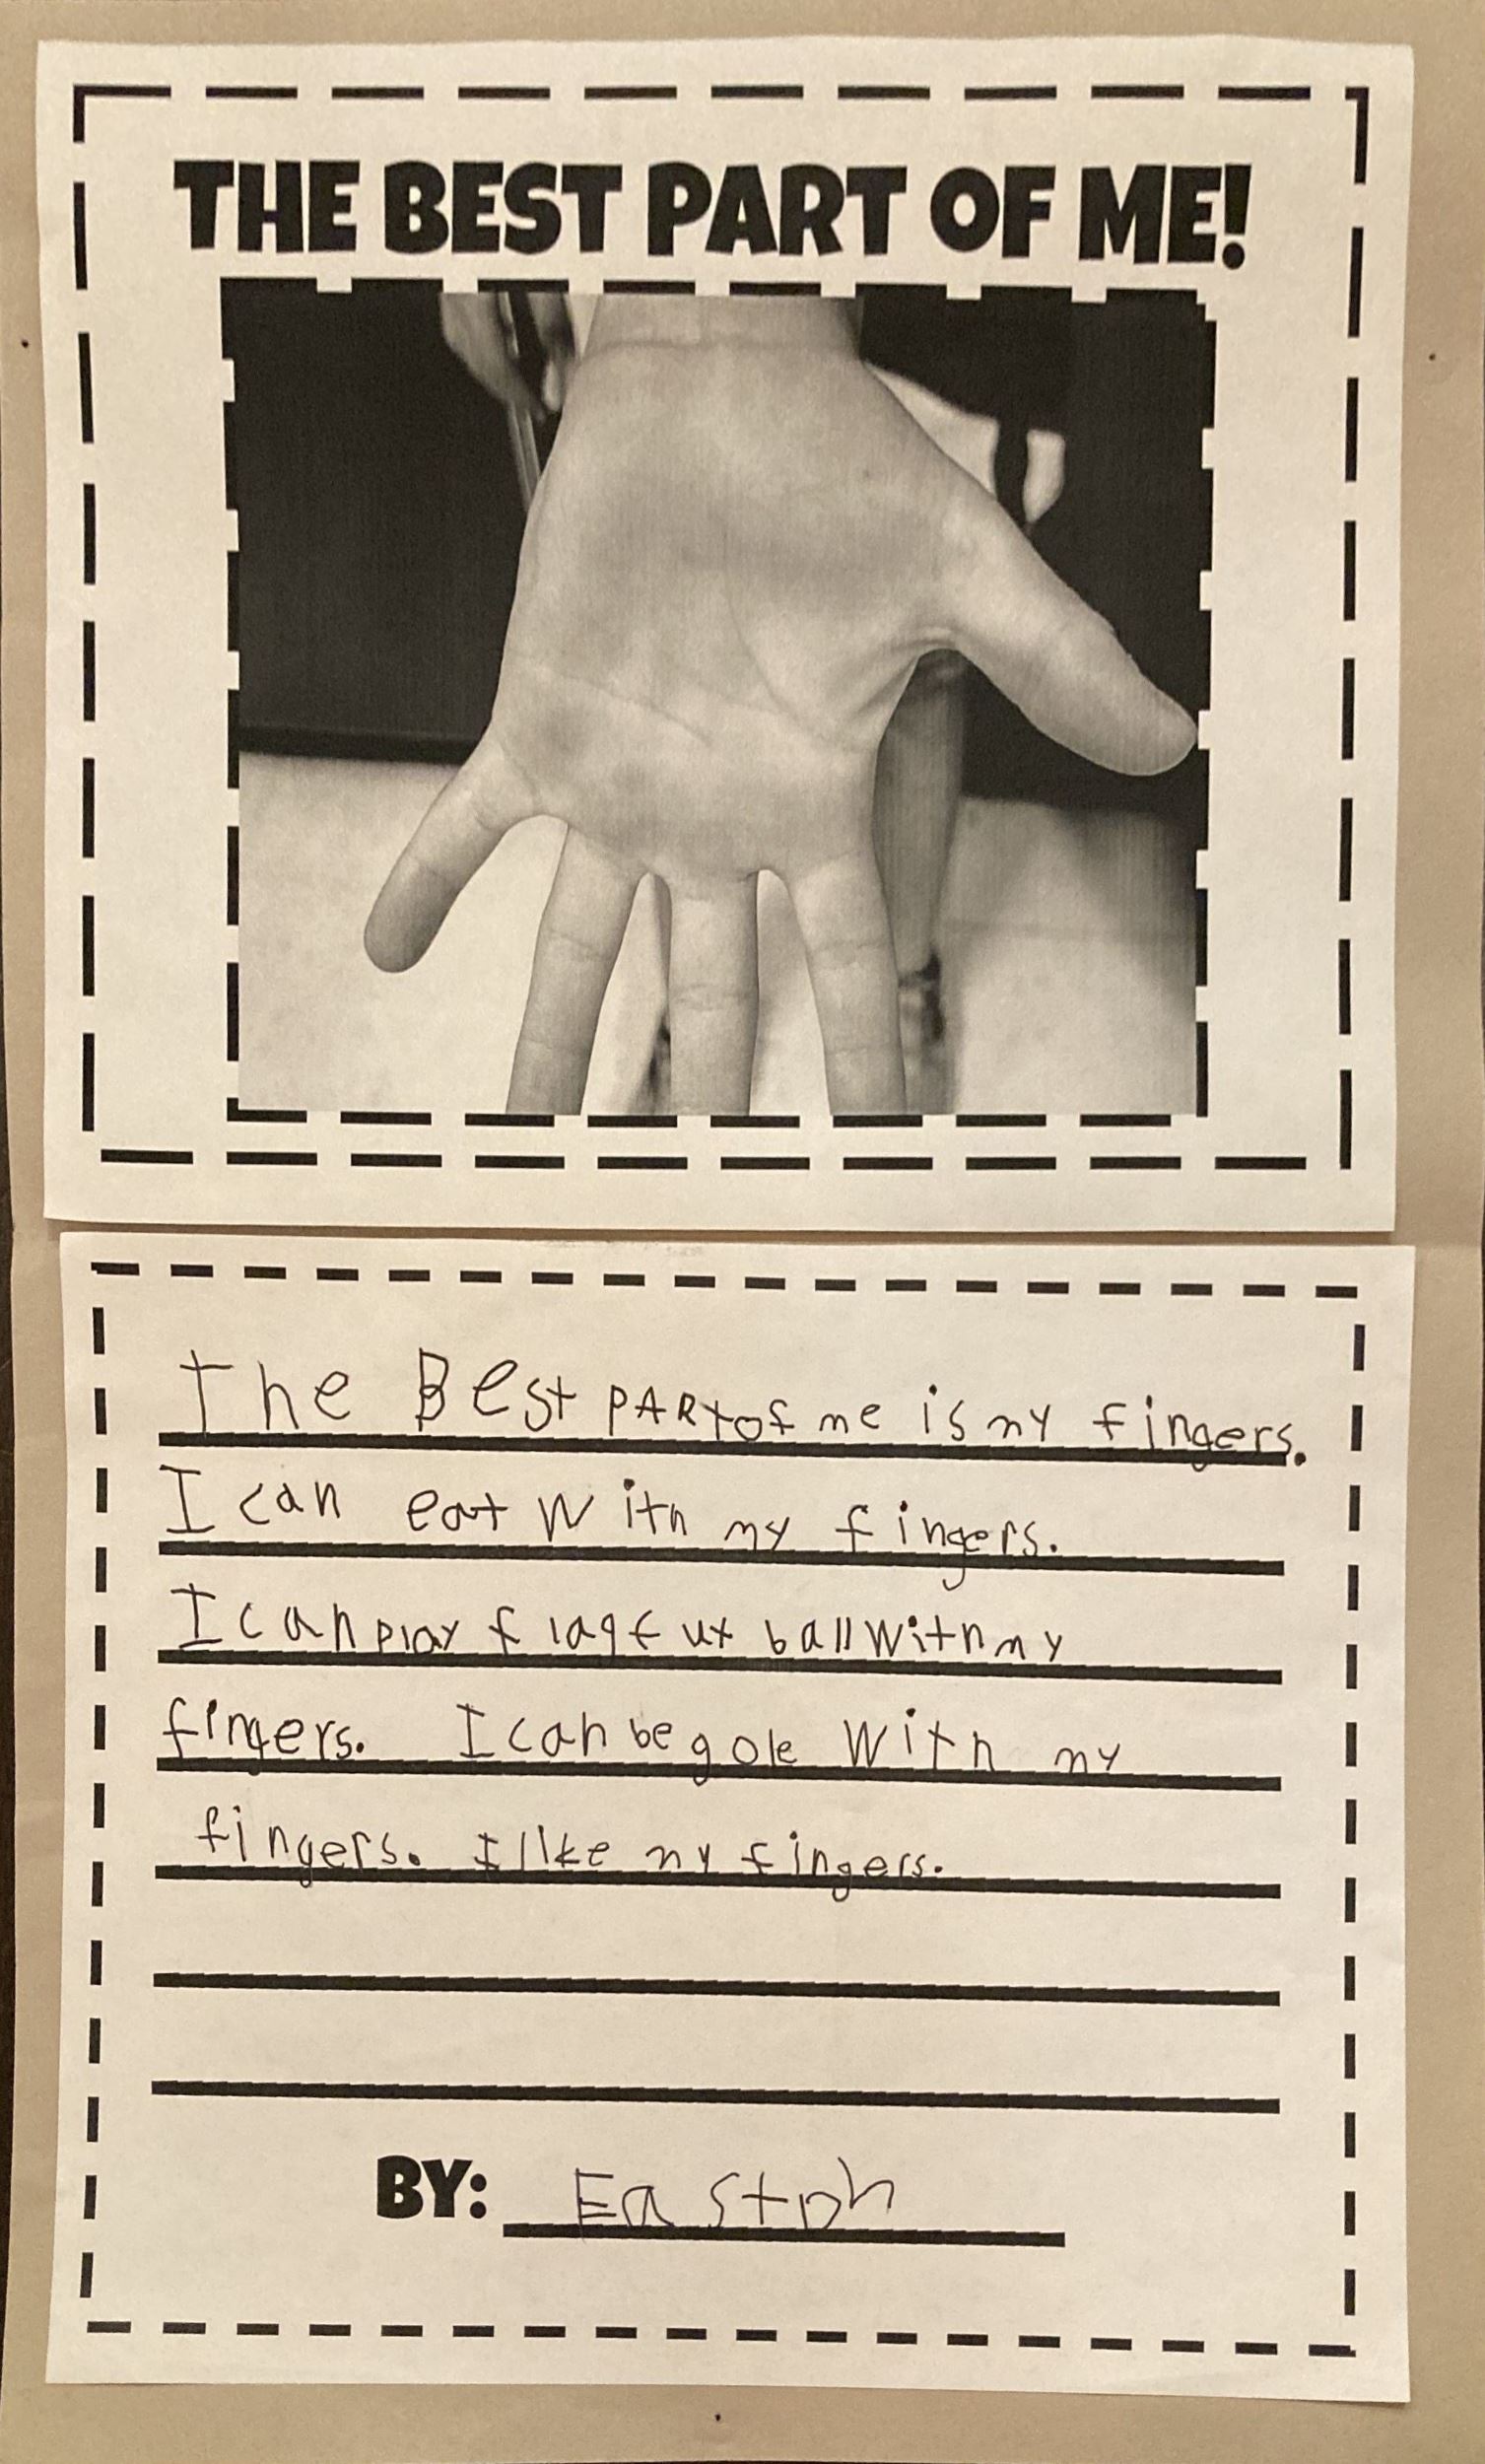 THE BEST PART OF ME!
The Best PARt of me is my fingers.
I can eat with my fingers.
I can play flag fut ball with my
fingers. I can be gole with my
fingers. I like my fingers.
BY: Easton